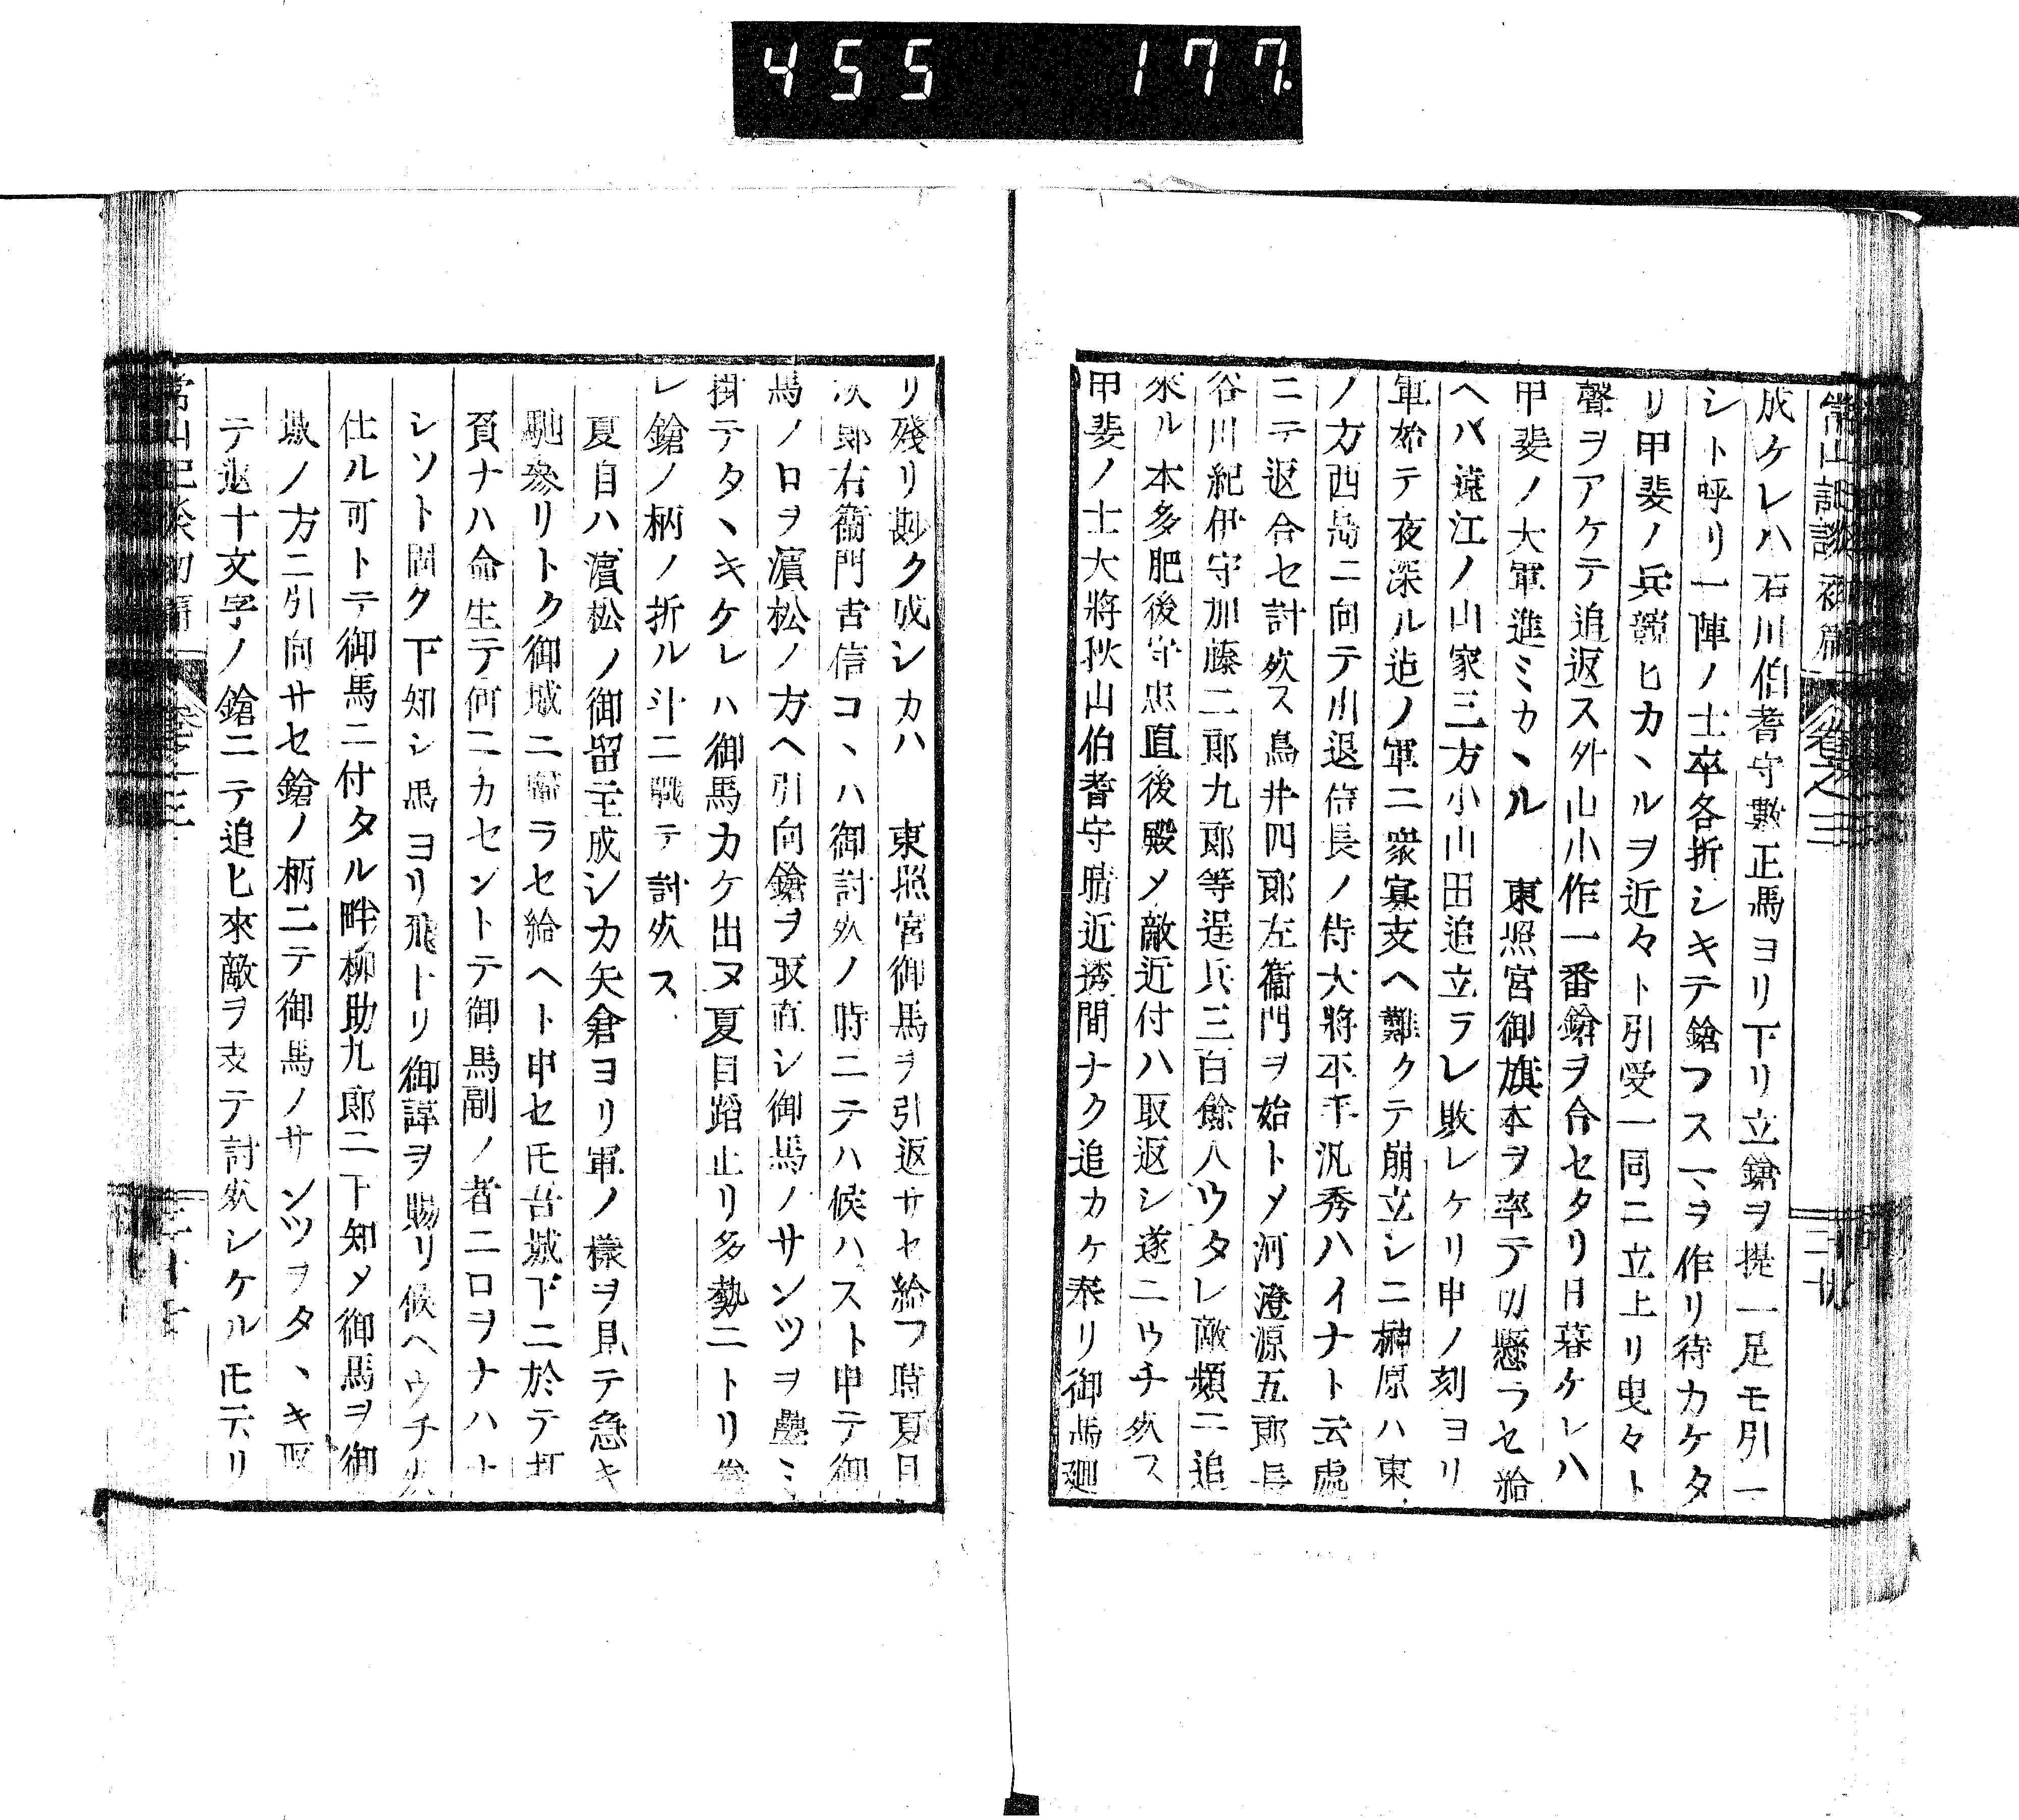 455 177.
常山記談初篇 卷之三 二十九
成ケレハ石川伯耆守數正馬ヨリ下リ立鎗ヲ提一足モ引一
シト呼リ一陣ノ士卒各折シキテ鎗フスマヲ作リ待カケタ
リ甲斐ノ兵競ヒカヽルヲ近々ト引受一同ニ立上リ曳々ト
聲ヲアケテ追返ス外山小作一番鎗ヲ合セタリ日暮ケレハ
甲斐ノ大軍進ミカヽル 東照宮御旗本ヲ率テ切懸ラセ給
ヘバ遠江ノ山家三方小山田追立ラレ敗レケリ申ノ刻ヨリ
軍始テ夜深ル迠ノ軍ニ衆寡支ヘ難クテ崩立シニ榊原ハ東
ノ方西嶋ニ向テ引退信長ノ侍大將平手汎秀ハイナト云處
ニテ返合セ討死ス鳥井四郎左衞門ヲ始トメ河澄源五郎長
谷川紀伊守加藤二郎九郎等逞兵三百餘人ウタレ敵頻ニ追
來ル本多肥後守忠直後殿メ敵近付ハ取返シ遂ニウチ死ス
甲斐ノ士大將秋山伯耆守晴近透間ナク追カケ奉リ御馬廻
リ殘リ尠ク成シカハ 東照宮御馬ヲ引返サセ給フ時夏目
次郎右衞門吉信コヽハ御討死ノ時ニテハ候ハスト申テ御
馬ノ口ヲ濱松ノ方ヘ引向鎗ヲ取直シ御馬ノサンツヲ疊ミ
掛テタヽキケレハ御馬カケ出ヌ夏目蹈止リ多勢ニトリ巻
レ鎗ノ柄ノ折ル斗ニ戰テ討死ス
夏目ハ濱松ノ御留主成シカ矢倉ヨリ軍ノ樣ヲ見テ急キ
馳參リトク御城ニ歸ラセ給ヘト申セ𪜈吾城下ニ於テ打
負ナハ命生テ何ニカセントテ御馬副ノ者ニ口ヲナハナ
シソト聞ク下知シ馬ヨリ飛下リ御諱ヲ賜リ候ヘウチ死
仕ル可トテ御馬ニ付タル畔柳助九郎ニ下知メ御馬ヲ御
城ノ方ニ引向サセ鎗ノ柄ニテ御馬ノサンツヲタヽキ取
テ返十文字ノ鎗ニテ追ヒ來敵ヲ支テ討死シケル𪜈云リ
常山記談初篇 卷之三